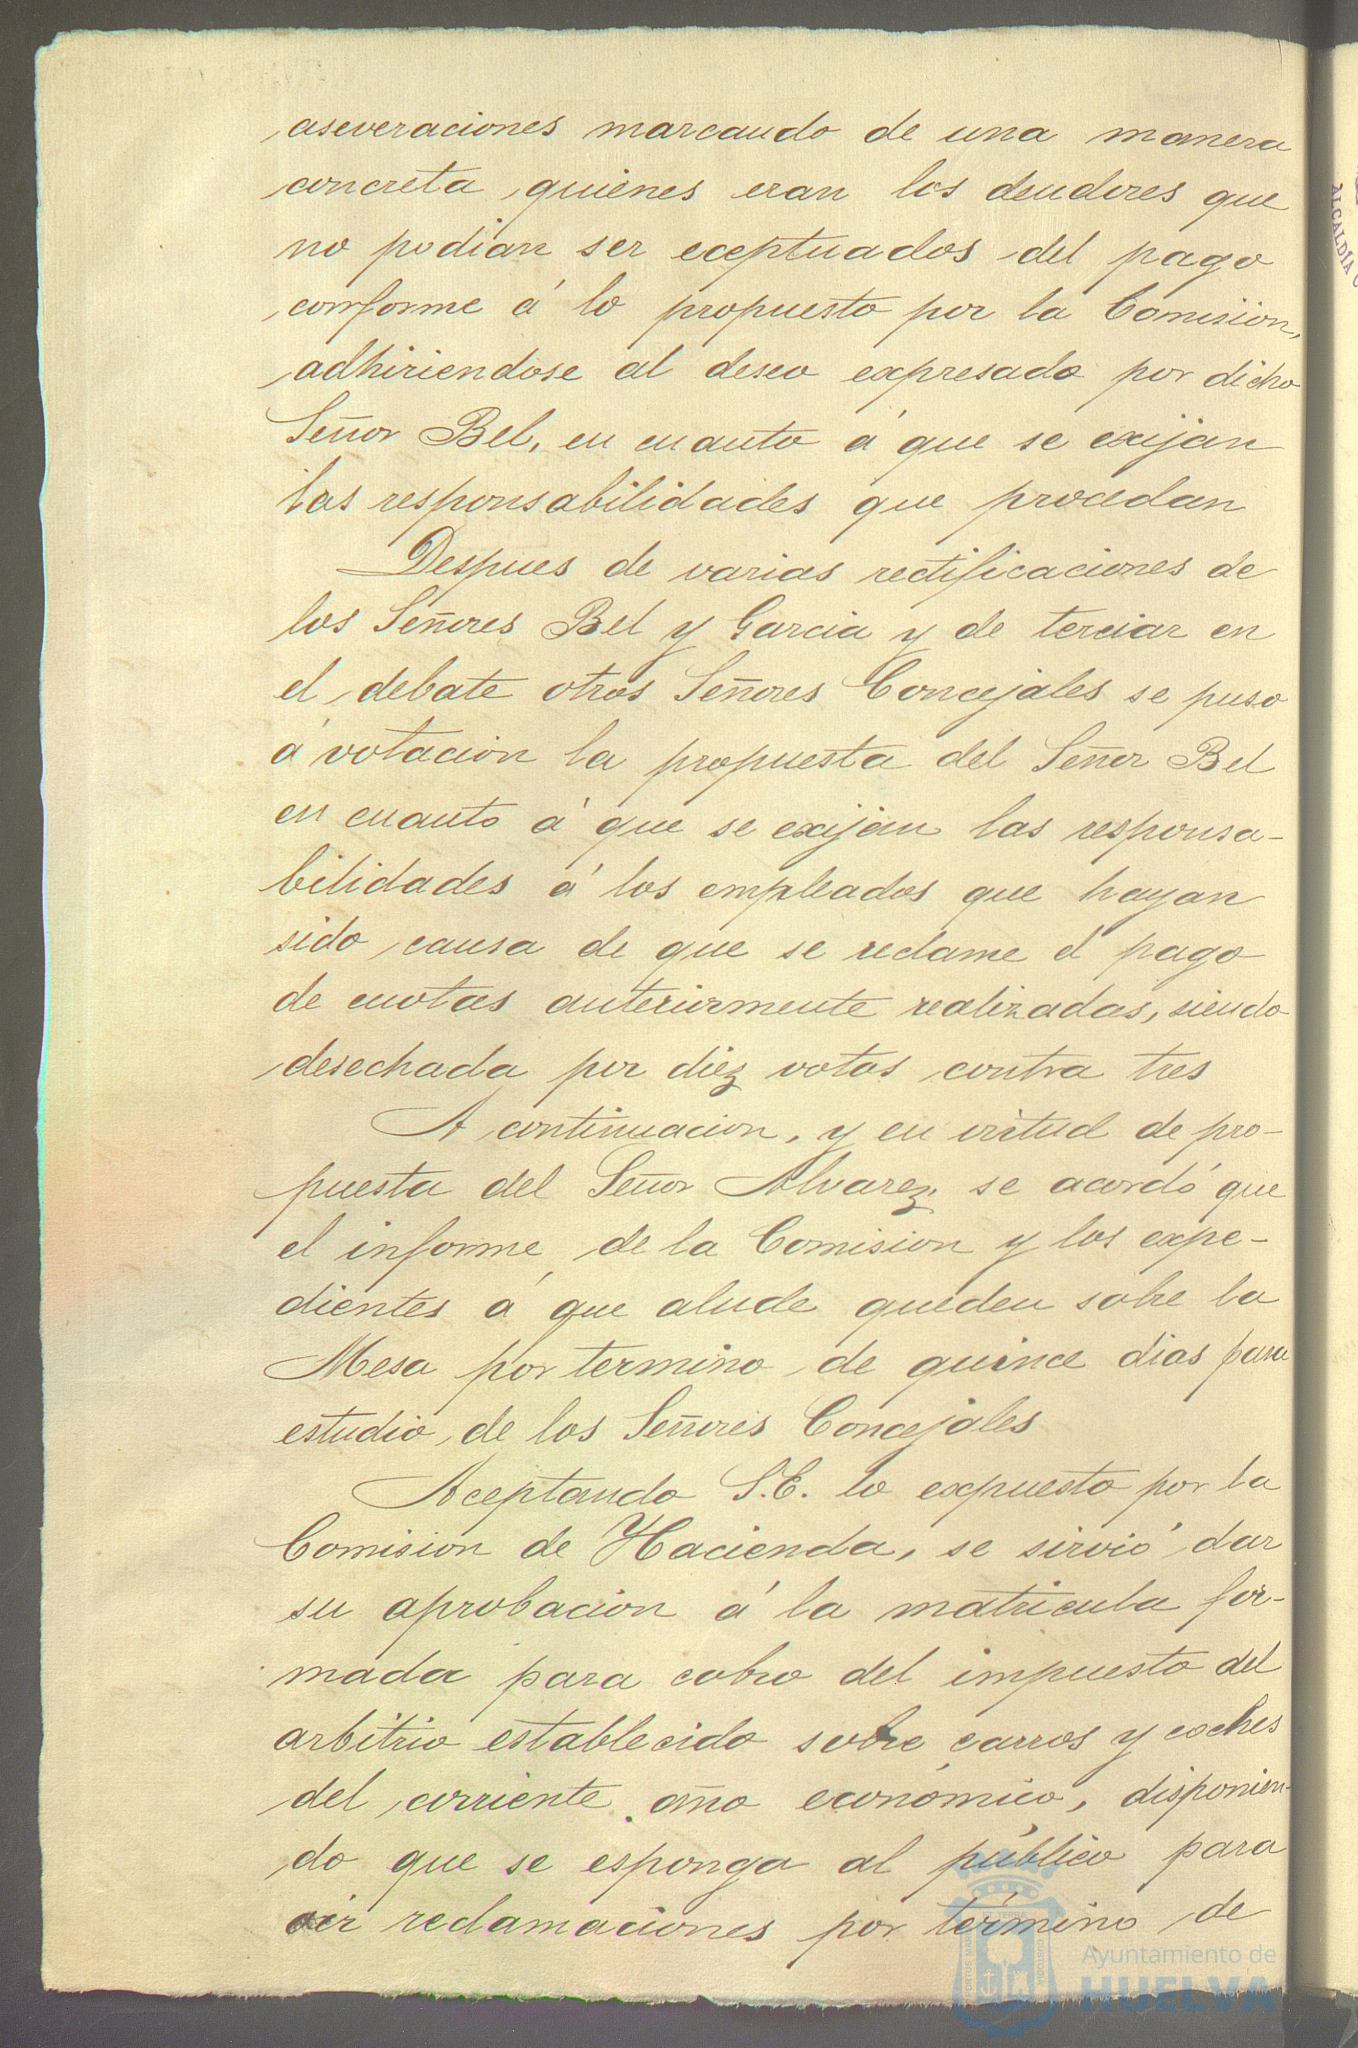 aseveraciones marcando de una manera
concreta quienes eran los deudores que
no podian ser eceptuados del pago
conforme á lo propuesto por la Comision,
adhiriendose al deseo expresado por dicho
Señor Bel, en cuanto á que se exijan
las responsabilidades que procedan
Despues de varias rectificaciones de
los Señores Bel y Garcia y de terciar en
el debate otros Señores Concejales se puso
á votacion la propuesta del Señor Bel
en cuanto á que se exijan las responsa-
bilidades á los empleados que hayan
sido causa de que se reclame el pago
de cuotas anteriormente realizadas, siendo
desechada por diez votos contra tres
A continuacion, y en virtud de pro-
puesta del Señor Alvarez, se acordó que
el informe de la Comision y los expe-
dientes á que alude queden sobre la
Mesa por termino de quince dias para
estudio de los Señores Concejales
Aceptando S.E. lo expuesto por la
Comision de Hacienda, se sirvió dar
su aprobacion á la matricula for-
mada para cobro del impuesto del
arbitrio establecido sobre carros y coches
del corriente año económico, disponien-
do que se esponga al público para
oir reclamaciones por término de
Ayuntamiento de
HUELVA
ALCALDÍA